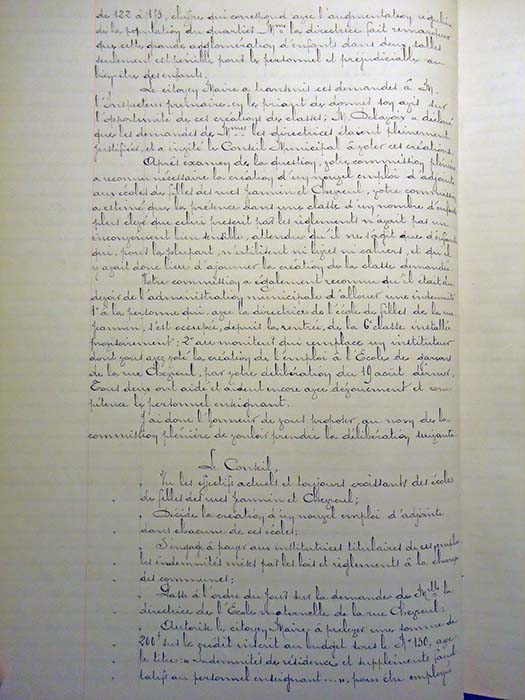 de 122 à 173, chiffre qui correspond avec l'augmentation régulière
de la population du quartier. Mme la directrice fait remarquer
que cette grande agglomération d'enfants dans deux salles
seulement est pénible pour le personnel et préjudiciable au
bien-être des enfants.
Le citoyen Maire a transmis ces demandes à M.
l'Inspecteur primaire, en le priant de donner son avis sur
l'opportunité de ces créations de classes; M. a déclaré
que les demandes de Mmes les directrices étaient pleinement
justifiées, et a invité le Conseil Municipal à voter ces créations.
Après examen de la question, votre commission plénière
a reconnu nécessaire la création d'un nouvel emploi d'adjointe
aux écoles de filles des rues Jeannin et Chevreul; votre commission
a estimé que la présence dans une classe d'un nombre d'enfants
plus élevé que celui prescrit par les règlements n'avait pas un
inconvénient bien sensible, attendu qu'il ne s'agit que d'enfants
qui, pour la plupart, n'utilisent ni livres ni cahiers, et qu'il
y avait donc lieu d'ajourner la création de la classe demandée.
Votre commission a également reconnu qu'il était du
devoir de l'administration municipale d'allouer une indemnité
1° à la personne qui, avec la directrice de l'école de filles de la rue
Jeannin, s'est occupée, depuis la rentrée, de la 6e classe installée
provisoirement; 2° au moniteur qui remplace un instituteur
dont vous avez voté la création de l'emploi à l'Ecole de garçons
de la rue Chevreul, par votre délibération du 19 août dernier.
Tous deux ont aidé et aident encore avec dévouement et com-
pétence le personnel enseignant.
J'ai donc l'honneur de vous proposer, au nom de la
commission plénière de vouloir prendre la délibération suivante
Le Conseil,
" Vu les effectifs actuels et toujours croissants des écoles
" de filles des rues Jeannin et Chevreul;
" Décide la création d'un nouvel emploi d'adjointe
" dans chacune de ces écoles;
" S'engage à payer aux institutrices titulaires de ces emplois
" les indemnités mises par les lois et règlements à la charge
" des communes;
" Passe à l'ordre du jour sur la demande de Melle la
" directrice de l'Ecole maternelle de la rue Chevreul;
" Autorise le citoyen Maire à prélever une somme de
" 200f sur le crédit inscrit au budget sous le N° 130, avec
" le titre: « Indemnités de résidence et suppléments facul
" tatifs au personnel enseignant... », pour être employée